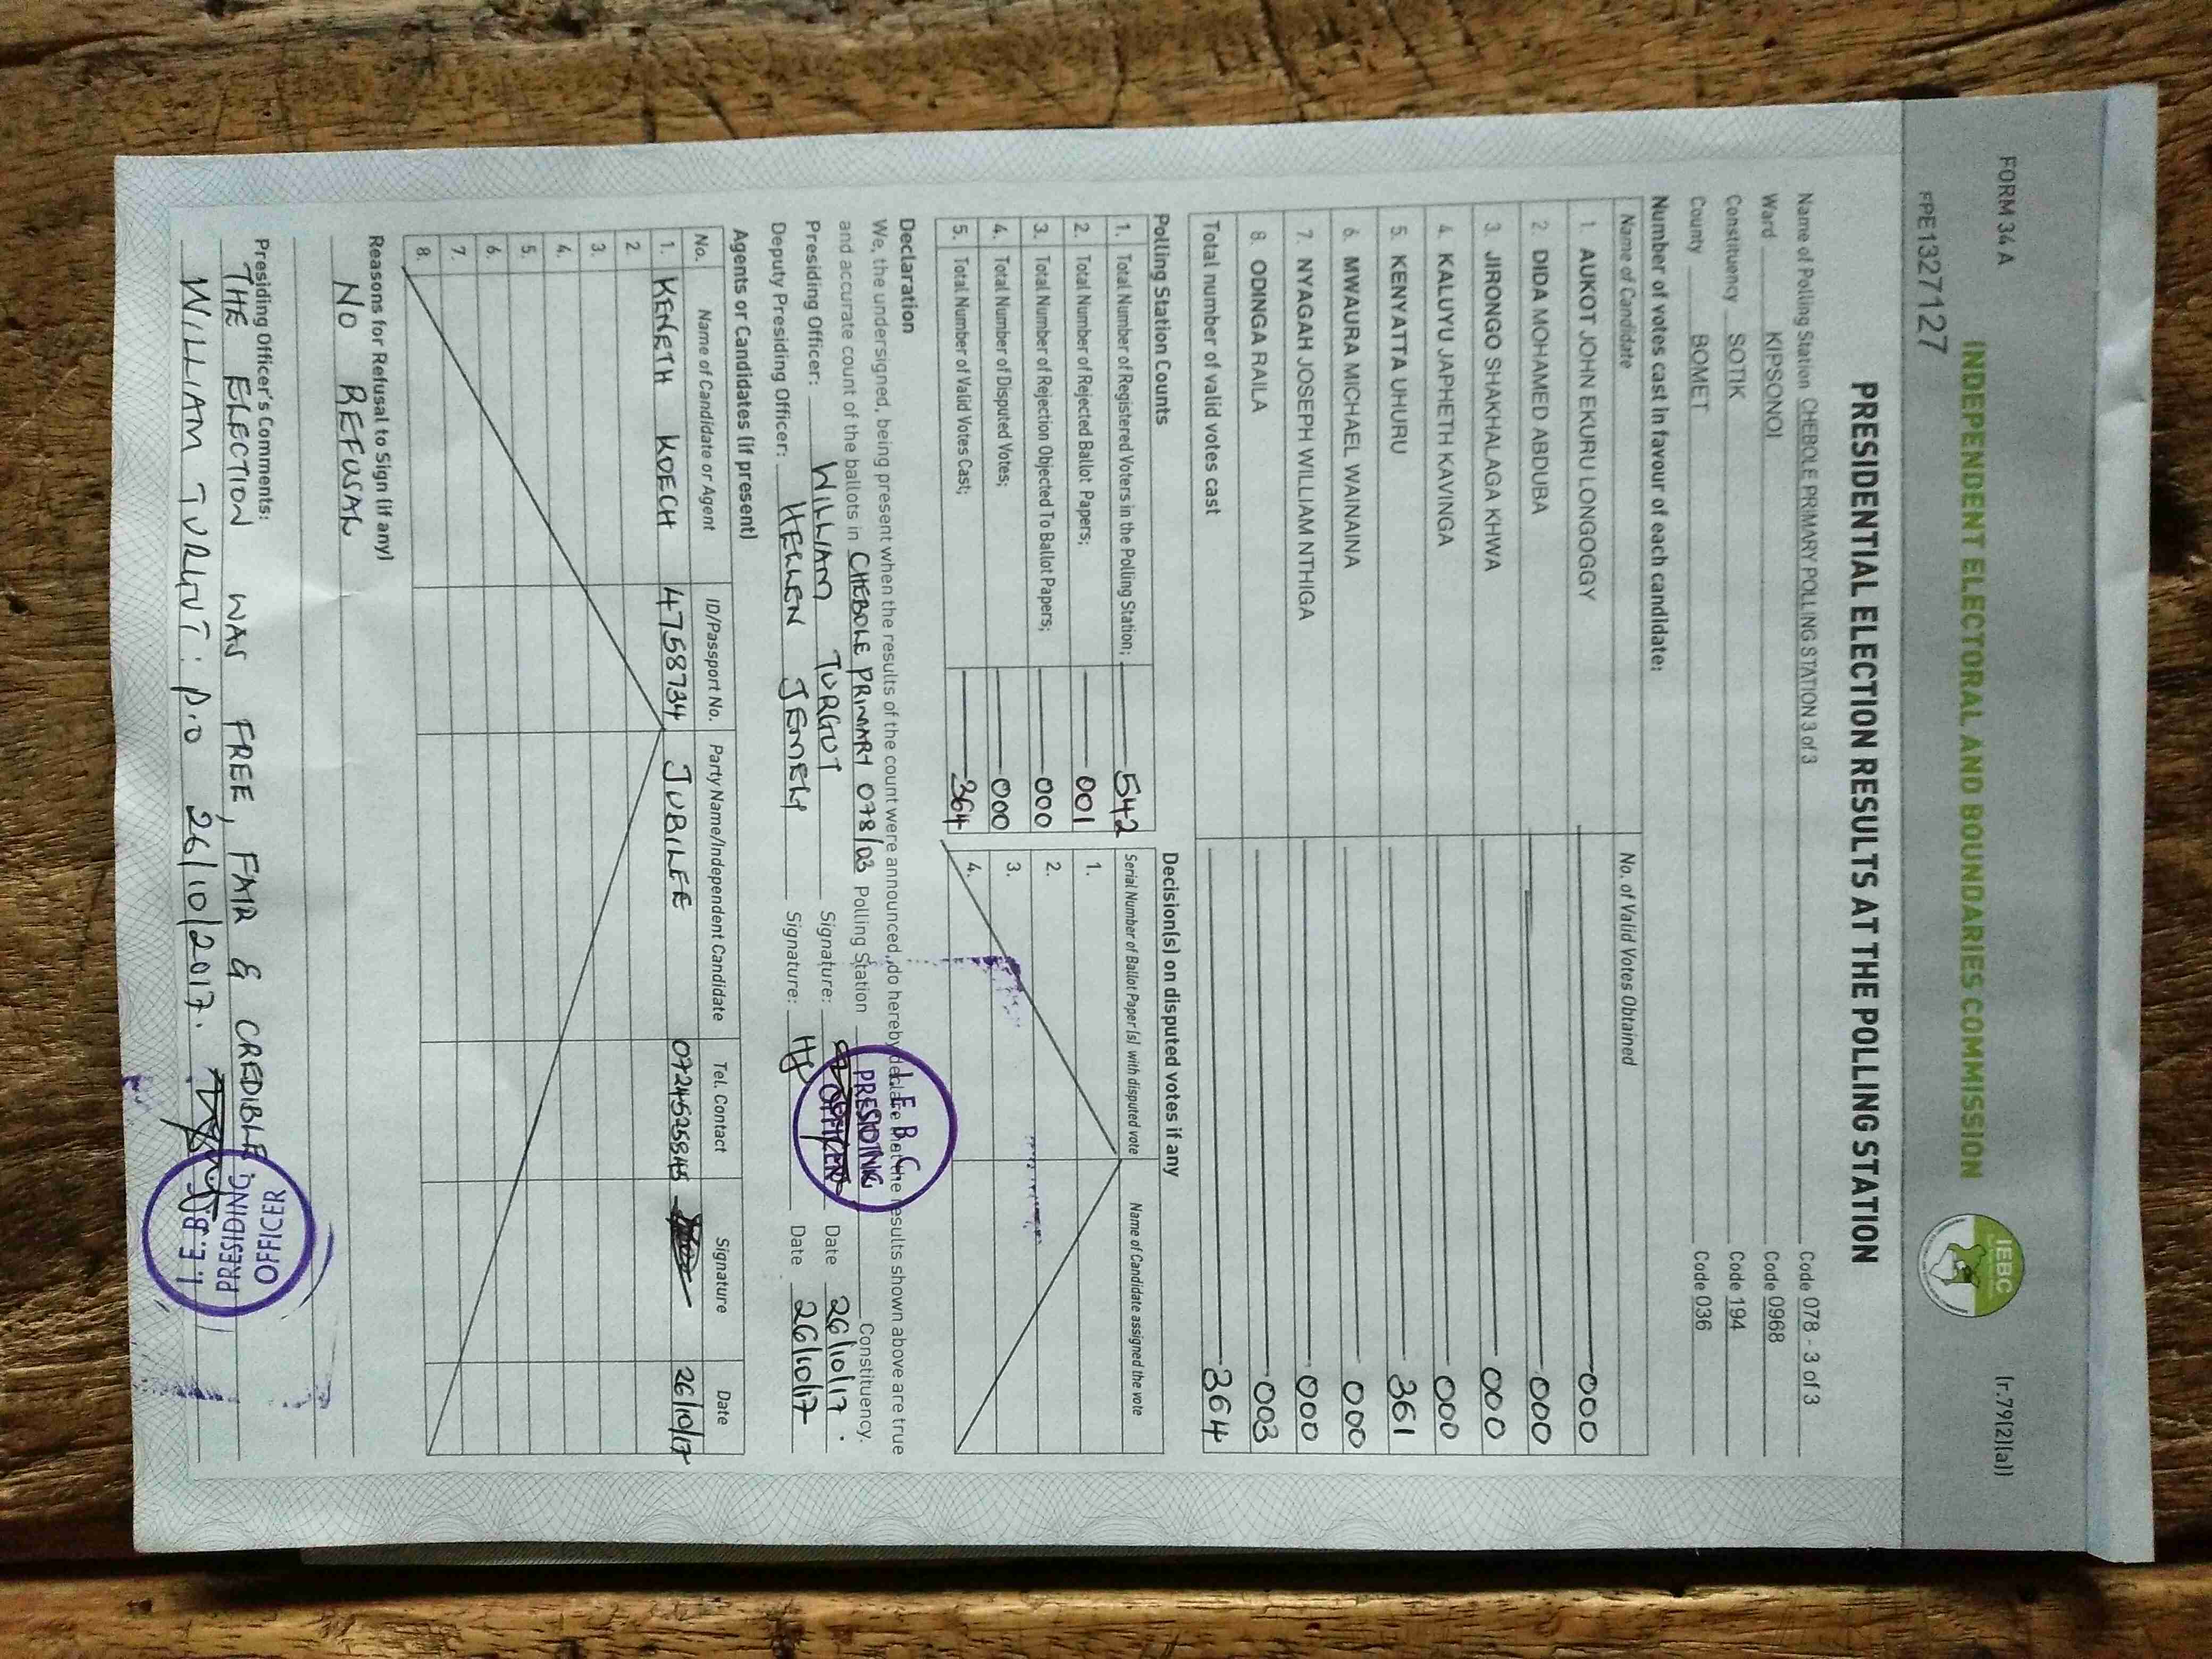 FORM 34 A
(r.79(2)(a))
INDEPENDENT ELECTORAL AND BOUNDARIES COMMISSION
IEBC
FPE1327127
PRESIDENTIAL ELECTION RESULTS AT THE POLLING STATION
Name of Polling Station CHEBOLE PRIMARY POLLING STATION 3 of 3 Code 078 - 3 of 3
Ward KIPSONOI Code 0968
Constituency SOTIK Code 194
County BOMET Code 036
Number of votes cast in favour of each candidate:
Name of Candidate No. of Valid Votes Obtained
1. AUKOT JOHN EKURU LONGOGGY 000
2. DIDA MOHAMED ABDUBA 000
3. JIRONGO SHAKHALAGA KHWA 000
4. KALUYU JAPHETH KAVINGA 000
5. KENYATTA UHURU 361
6. MWAURA MICHAEL WAINAINA 000
7. NYAGAH JOSEPH WILLIAM NTHIGA 000
8. ODINGA RAILA 003
Total number of valid votes cast 364
Polling Station Counts
1. Total Number of Registered Voters in the Polling Station; 542
2. Total Number of Rejected Ballot Papers; 001
3. Total Number of Rejection Objected To Ballot Papers; 000
4. Total Number of Disputed Votes; 000
5. Total Number of Valid Votes Cast; 364
Decision(s) on disputed votes if any
Serial Number of Ballot Paper (s) with disputed vote Name of Candidate assigned the vote
1.
2.
3.
4.
Declaration
We, the undersigned, being present when the results of the count were announced, do hereby declare that the results shown above are true
and accurate count of the ballots in CHEBOLE PRIMARY 078/03 Polling Station Constituency.
Presiding Officer: WILLIAM TURGUT Signature: Date 26/10/17.
Deputy Presiding Officer: HELLEN JEMELI Signature: HJ Date 26/10/17
I.E.B.C
PRESIDING
OFFICER
Agents or Candidates (if present)
No. Name of Candidate or Agent ID/Passport No. Party Name/Independent Candidate Tel. Contact Signature Date
1. KENETH KOECH 4758734 JUBILEE 0724525845 26/10/17
2.
3.
4.
5.
6.
7.
8.
Reasons for Refusal to Sign (if any)
NO REFUSAL
Presiding Officer's Comments:
THE ELECTION WAS FREE, FAIR & CREDIBLE.
WILLIAM TURGUT : P.O 26/10/2017.
I.E.B
PRESIDING
OFFICER